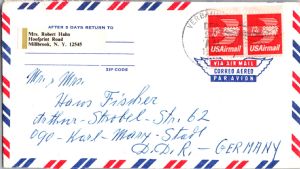 AFTER 5 DAYS RETURN TO
Mrs. Robert Hahn
Hoofprint Road
Millbrook, N. Y. 12545
ZIP CODE
VERBA
USAirmail
USAirmail
VIA AIR MAIL
CORREO AEREO
PAR AVION
Mr., Mrs.
Hans Fischer
Arthur-Strobel-Str. 62
090-Karl-Marx-Stadt
D.D.R. - GERMANY